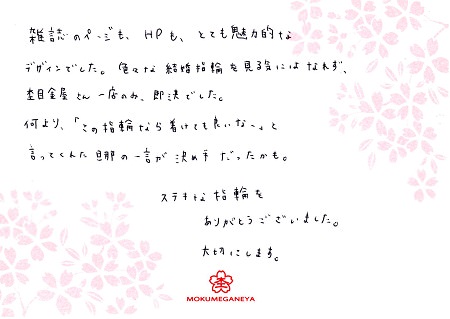 雑誌のページも、HPも、とても魅力的な
デザインでした。色々な結婚指輪を見る気にはなれず、
杢目金屋さん一店のみ、即決でした。
何より、「この指輪なら着けても良いな。」と
言ってくれた旦那の一言が決め手だったかも。
ステキな指輪を
ありがとうございました。
大切にします。
MOKUMEGANEYA